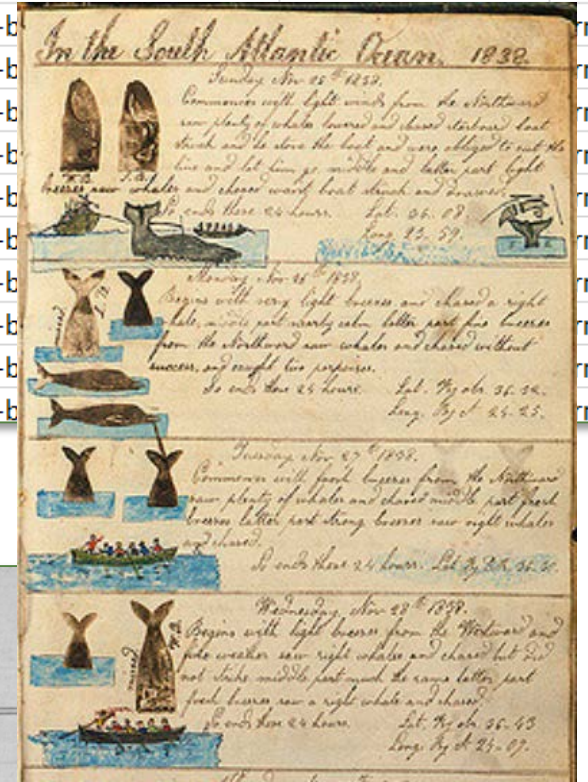 In the South Atlantic Ocean. 1838.
Sunday Nov 25th 1838.
Commences with light winds from the Northward
saw plenty of whales lowered and chased starboard boat
struck and he stove the boat and were obliged to cut the
line and let him go middle and latter part light
breezes saw whales and chased waist boat struck and drawed.
So ends these 24 hours. Lat. 36.08.
Long 23.59.
Monday Nov 26th 1838.
Begins with very light breezes and chased a right
whale, middle part nearly calm latter part fine breezes
from the Northward saw whales and chased without
success, and caught two porpoises.
So ends these 24 hours. Lat. By obs. 36.32.
Long. By 24.25.
Tuesday Nov 27th 1838.
Commences with fresh breezes from the Northward
saw plenty of whales and chased middle part fresh
breezes latter part strong breezes saw right whales
and chased.
So ends these 24 hours. Lat By 36.
Wednesday, Nov 28th 1838.
Begins with light breezes from the Westward and
fine weather saw right whales and chased but did
not strike middle part much the same latter part
fresh breezes saw a right whale and chased.
So ends these 24 hours. Lat. By obs. 36-43
Long. By 24-07.